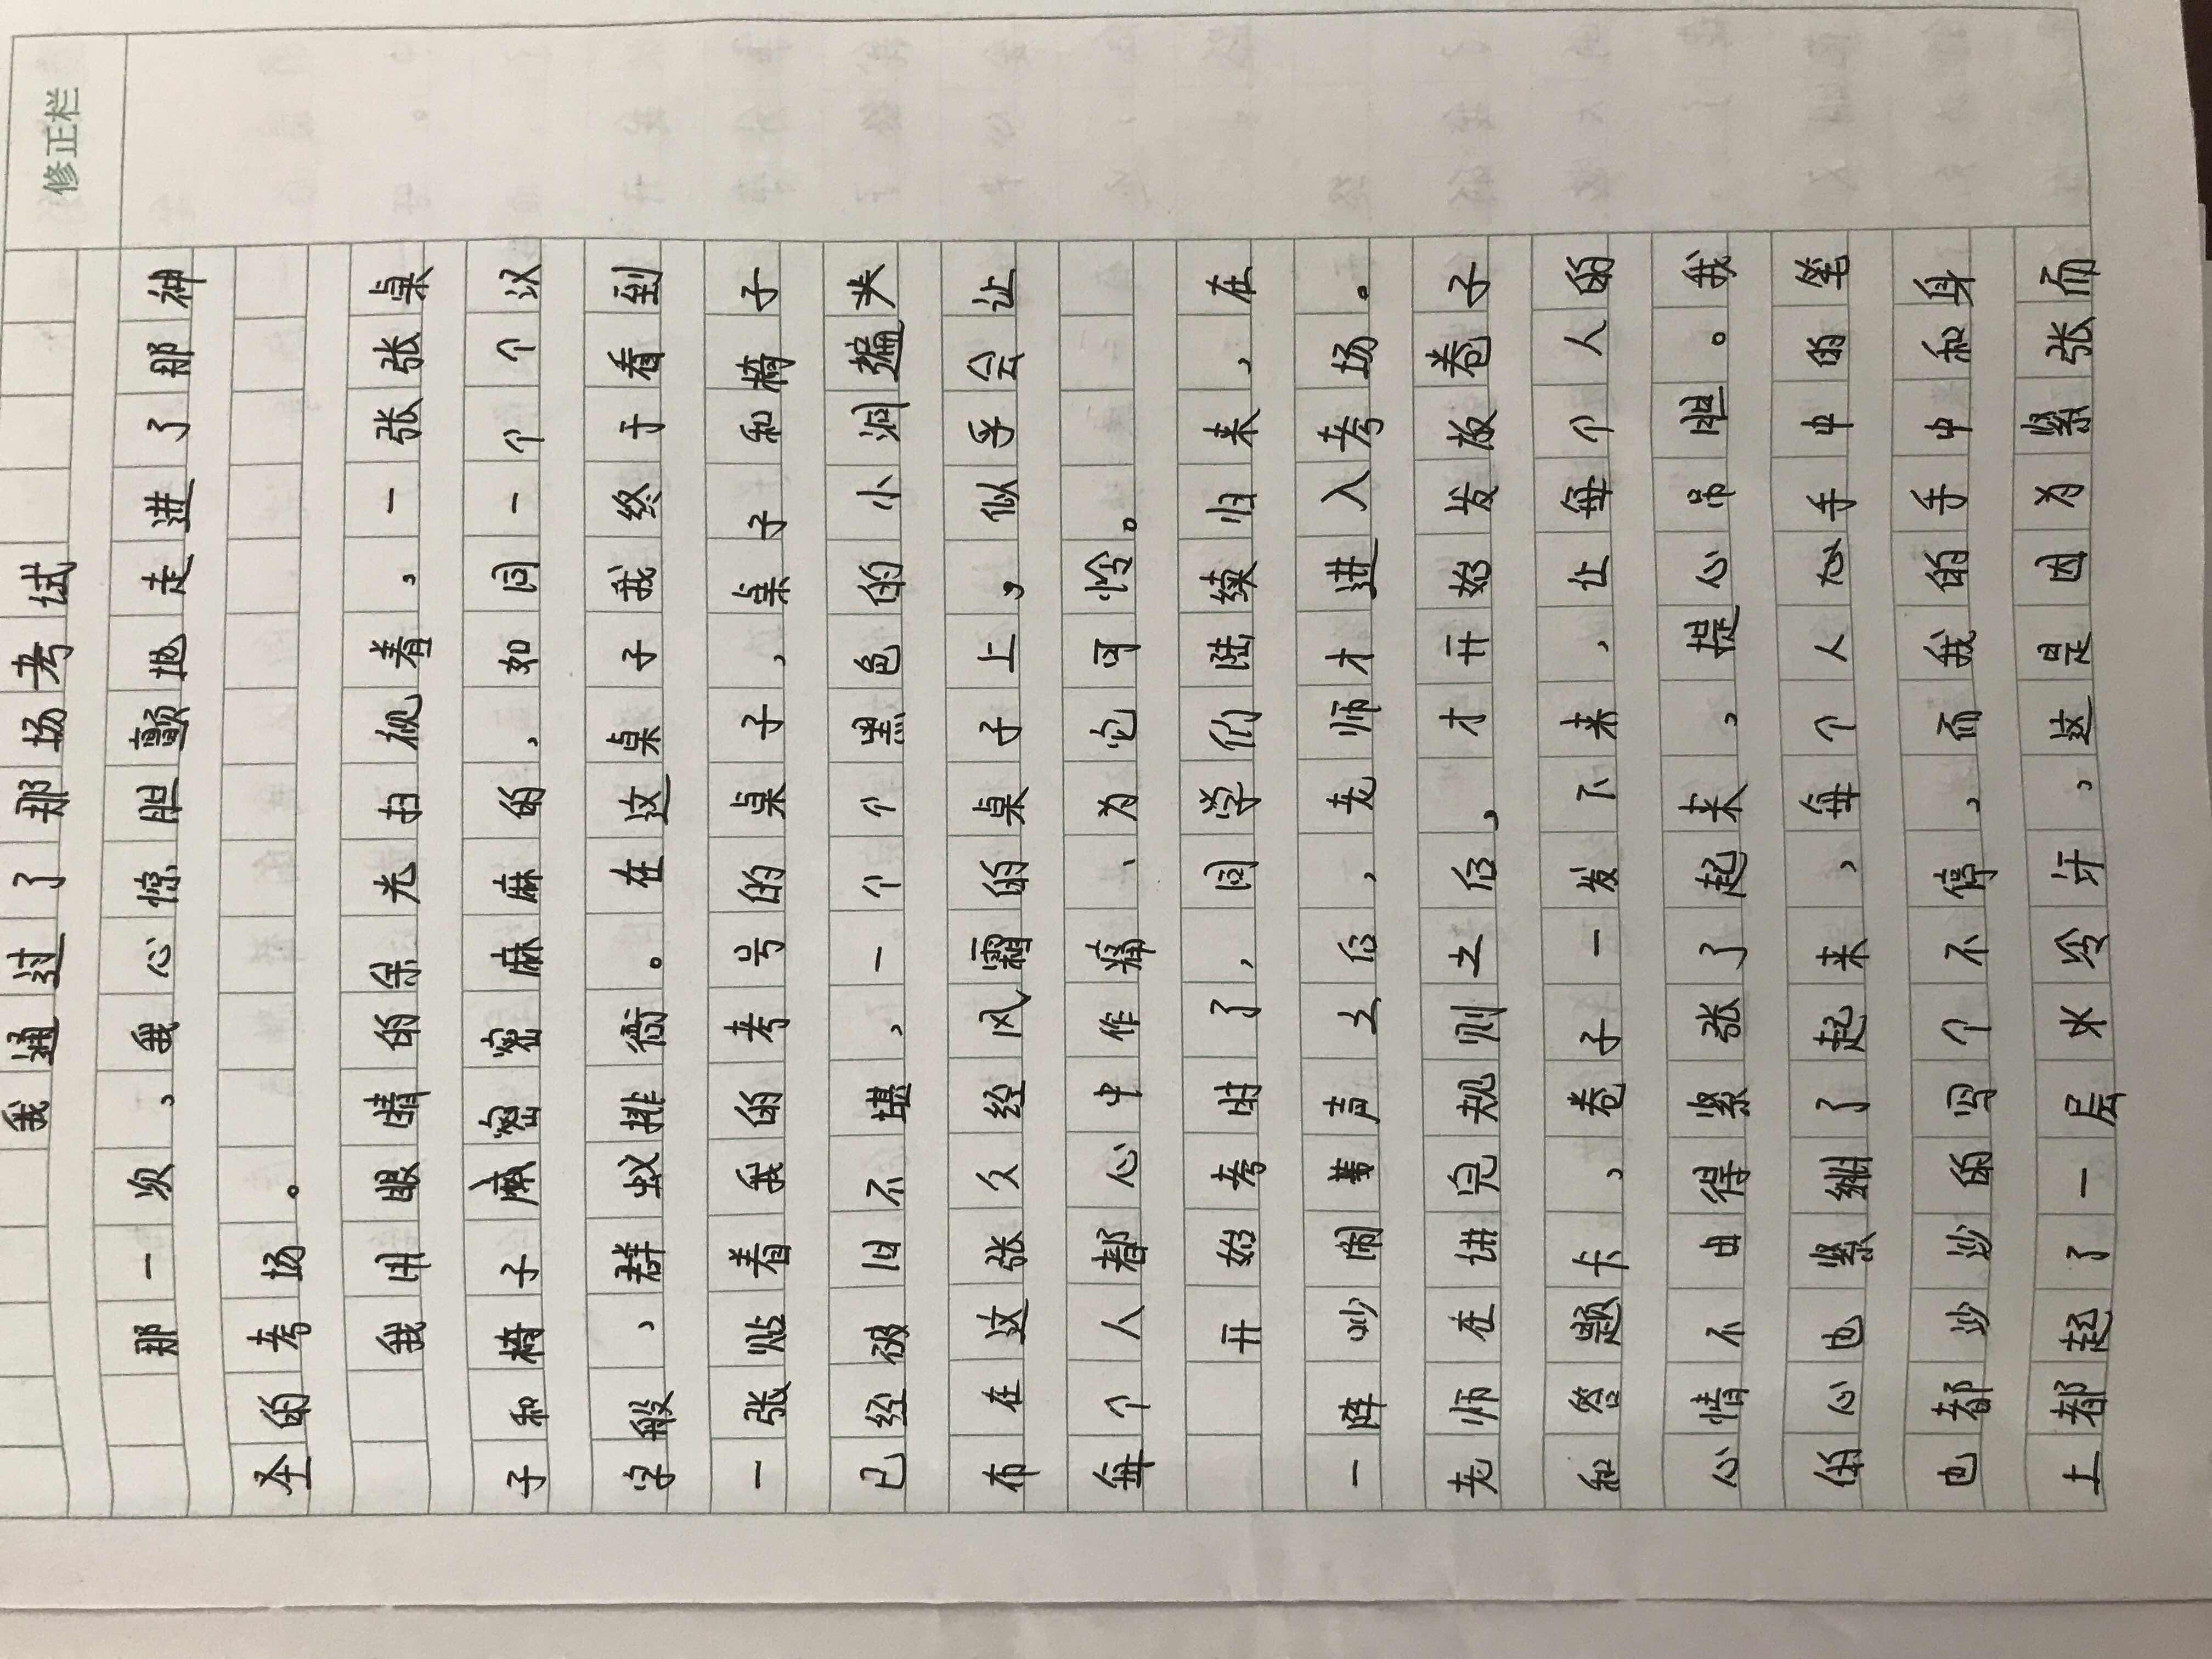 修正栏
我通过了那场考试
那一次，我心惊胆颤地走进了那神
圣的考场。
我用眼睛的余光扫视着，一张张桌
子和椅子威密密麻麻的，如同一个个汉
字般，群蚁排衙。在这桌子我终于看到
一张贴着我的考号的桌子，桌子和椅子
已经破旧不堪，一个个黑色的小洞遍失
布在这张久经风霜的桌子上，似乎会让
每个人都心中作痛、为它可怜。
开始考时了，同学们陆续归来，在
一阵吵闹声之后，老师才进入考场。
老师在讲完规则之后，才开始发放卷子
和答题卡，卷子一发下来，让每个人的
心情不由得紧张了起来，提心吊胆。我
的心也紧绷了起来，每个人手中的笔
也都沙沙的写个不停，而我的手中和身
上都起了一层水冷汗，这是因为紧张而